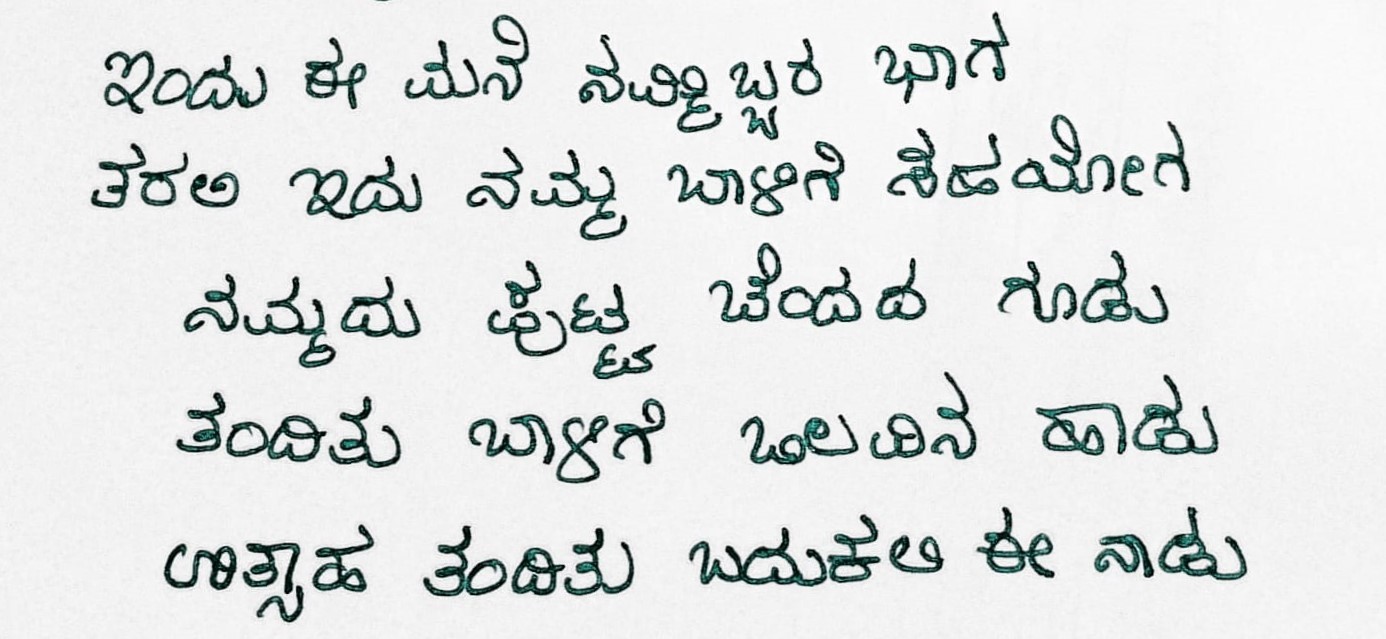 ಇಂದು ಈ ಮನೆ ನಮ್ಮಿಬ್ಬರ ಭಾಗ
ತರಲಿ ಇದು ನಮ್ಮ ಬಾಳಿಗೆ ಸಹಯೋಗ
ನಮ್ಮದು ಪುಟ್ಟ ಚೆಂದದ ಗೂಡು
ತಂದಿತು ಬಾಳಿಗೆ ಒಲವಿನ ಹಾಡು
ಉತ್ಸಾಹ ತಂದಿತು ಬದುಕಲಿ ಈ ನಾಡು